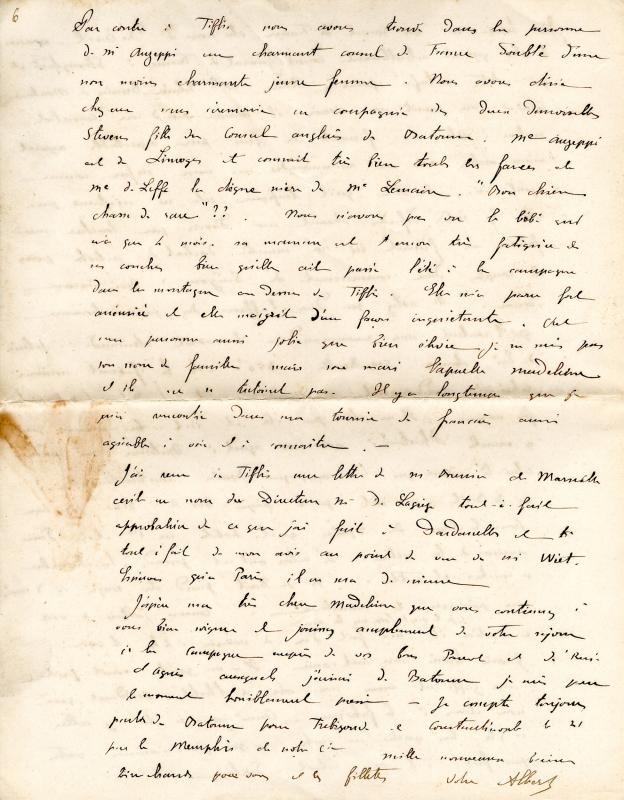 6
Par contre à Tiflis nous avons trouvé dans la personne
de Mr Auzeppi un charmant consul de France doublé d'une
non moins charmante jeune femme. Nous avons dîné
chez eux sans cérémonie en compagnie des deux Demoiselles
Stevens filles du Consul anglais de Batoum. Me Auzeppi
est de Limoges et connait très bien toutes les farces de
Me de la digne mère de Me Lemaire. "Bon chien
chasse de race"??. Nous n'avons pas vu le bébé qui
n'a que 2 mois. sa maman est encore très fatiguée de
ses couches bien qu'elle ait passé l'été à la campagne
dans la montagne au dessus de Tiflis. Elle m'a paru fort
anémiée et elle maigrit d'une façon inquiétante. C'est
une personne aussi jolie que bien élevée. je ne sais pas
son nom de famille mais son mari l'appelle Madeleine
et ils ne se tutoient pas. Il y a longtemps que je
n'ai rencontré dans ma tournée de français aussi
agréables à voir et à connaitre. —
J'ai reçu à Tiflis une lettre de Mr de Marseille
écrite au nom du Directeur Mr tout-à-fait
approbative de ce que j'ai fait à Dardanelles et
tout à fait de mon avis au point de vue de Mr Wiet.
Espérons qu'à Paris il en sera de même
J'espère ma très chère Madeleine que vous continuez à
vous bien soigner et jouissez amplement de votre séjour
à la campagne auprès de vos bons Parents et de
d'après auxquels j'écrirai de Batoum je suis pour
le moment horriblement pressé — Je compte toujours
partir de Batoum pour Trébizonde et Constantinople le 21
par le Memphis de notre Cie mille nouveaux baisers
bien tendres pour vous et les fillettes votre Albert